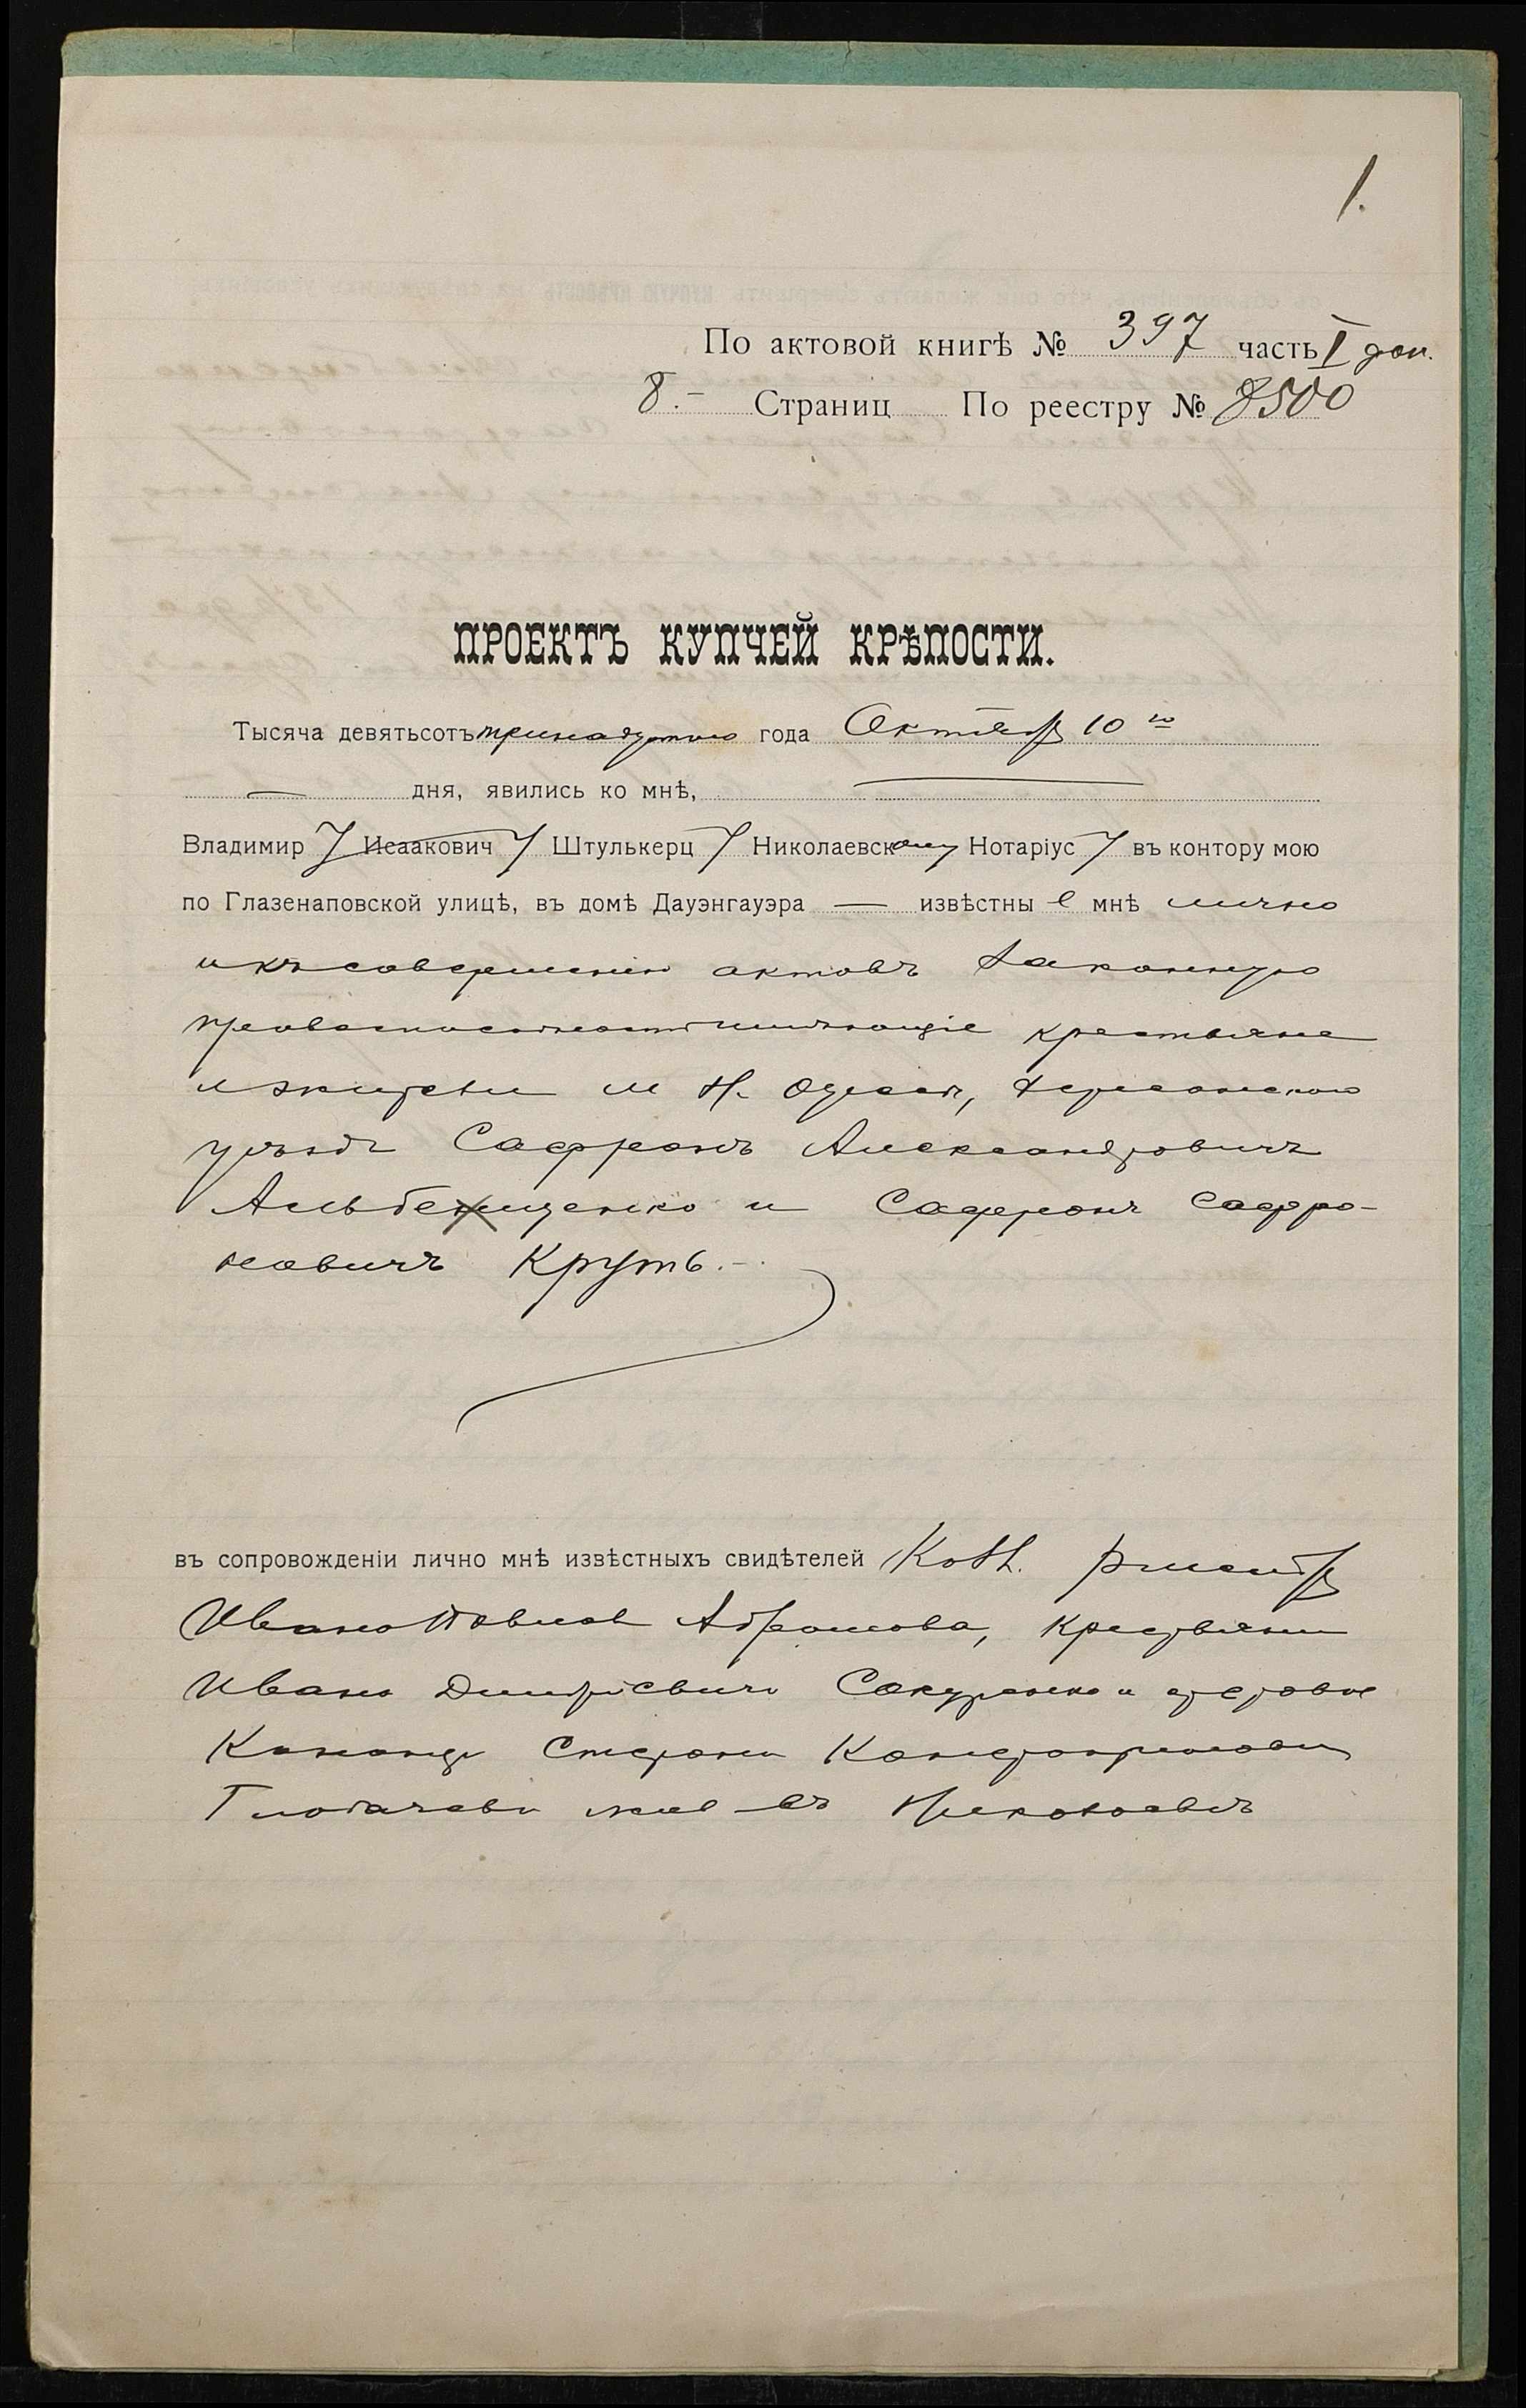 1.
По актовой книгѣ № 397 часть I доп.
8.- Страниц По реестру № 8500
ПРОЕКТЪ КУПЧЕЙ КРѢПОСТИ.
Тысяча девятьсотъ тринадцатаго года Октября 10 го
— дня, явились ко мнѣ,
Владимир Исаакович Штулькерц Николаевскому Нотаріус въ контору мою
по Глазенаповской улицѣ, въ домѣ Дауэнгауэра — извѣстные мнѣ лично
и къ совершенію актовъ законную
правоспособность имѣющіе крестьяне
и жители м Н. Одесса, Херсонскаго
уѣзда Сафронъ Александровичъ
и Сафронъ Сафро-
новичъ Круть.-
въ сопровожденіи лично мнѣ извѣстныхъ свидѣтелей
Абрамова, Крестьянин
Иванъ Дмитріевичъ
Степанъ
жив въ Николаевѣ